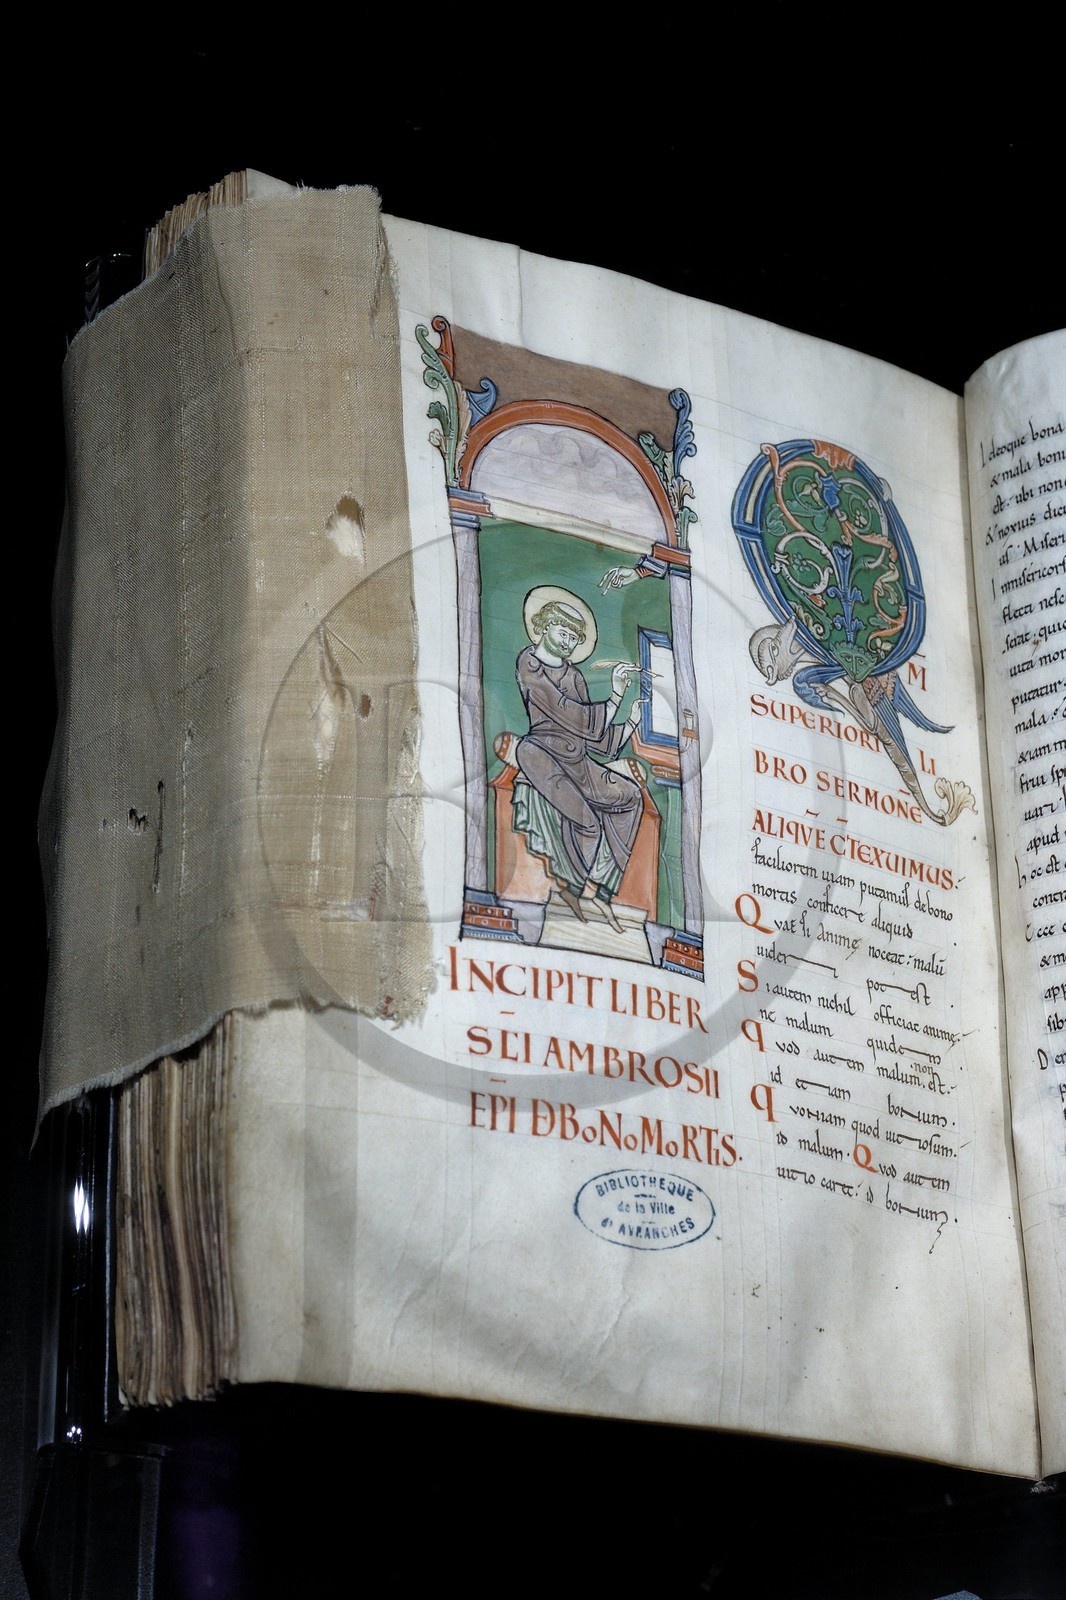 INCIPIT LIBER
SC̄I AMBROSII
EP̄I DE BONO MORTIS.
BIBLIOTHEQUE
de la Ville
d'AVRANCHES
Q M
SUPERIORI LI
BRO SERMONĒ
ALIQVĒ C̄TEXUIMUS.
faciliorem uiam putamus de bono
mortis conficere aliquid .
Quae si animę noceat: malū
uideri potest .
Si autem nichil officiat animę:
nec malum quidem
quod autem malum non est:
id etiam bonum.
quoniam quod uitiosum.
id malum. Quod autem
uitio caret: id bonum.
Ideoque bona
& mala boni
est. ubi non
& noxius
us. Miseri
flecti nesc
uita mor
mala.
&iam m
frui
apud
hoc est
contra
Ecce